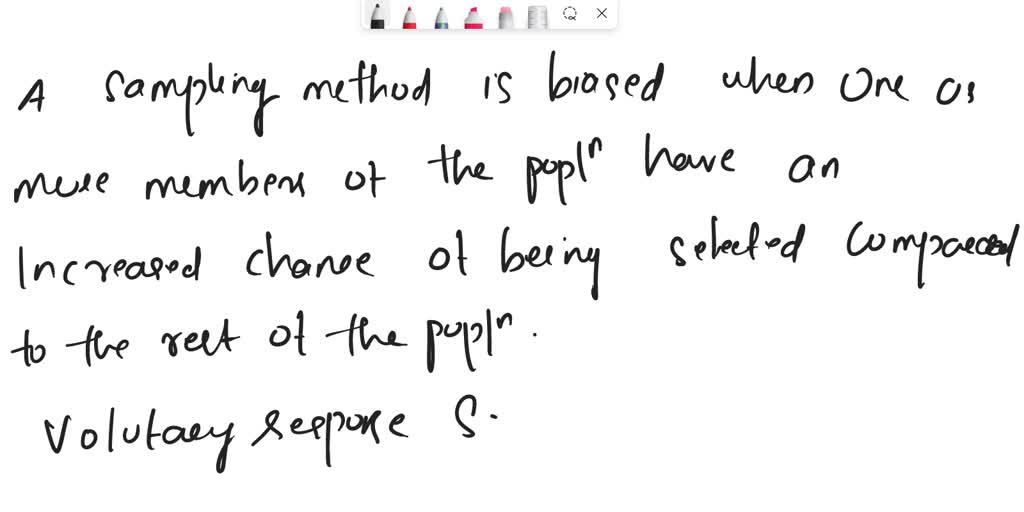 A sampling method is biased when one or
more members of the popl^n have an
Increased chance of being selected compared
to the rest of the popl^n.
Volutary respone S.